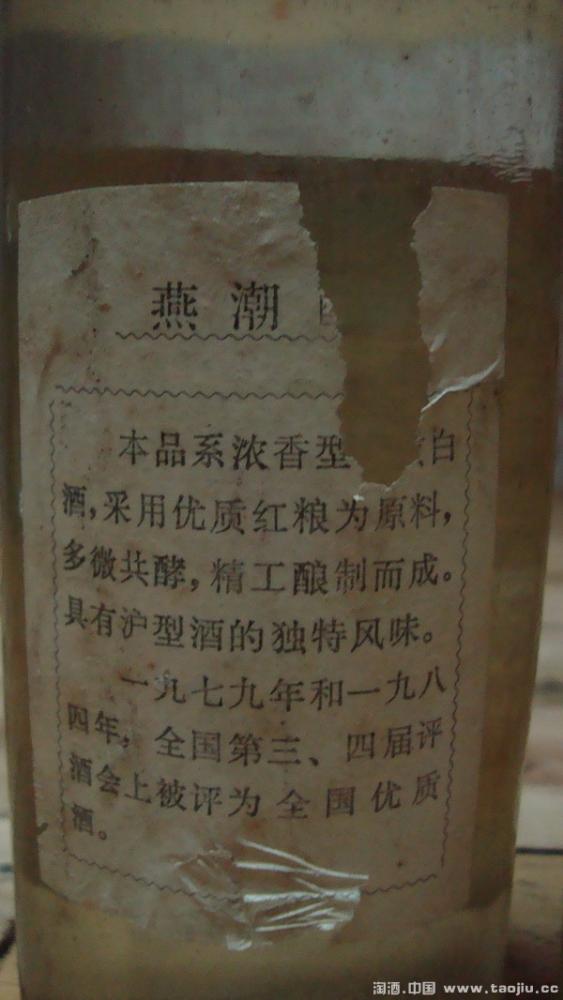 燕潮
本品系浓香型 白
酒，采用优质红粮为原料，
多微共酵，精工酿制而成。
具有沪型酒的独特风味。
一九七九年和一九八
四年，全国第三、四届评
酒会上被评为全国优质
酒。
淘酒.中国 www.taojiu.cc